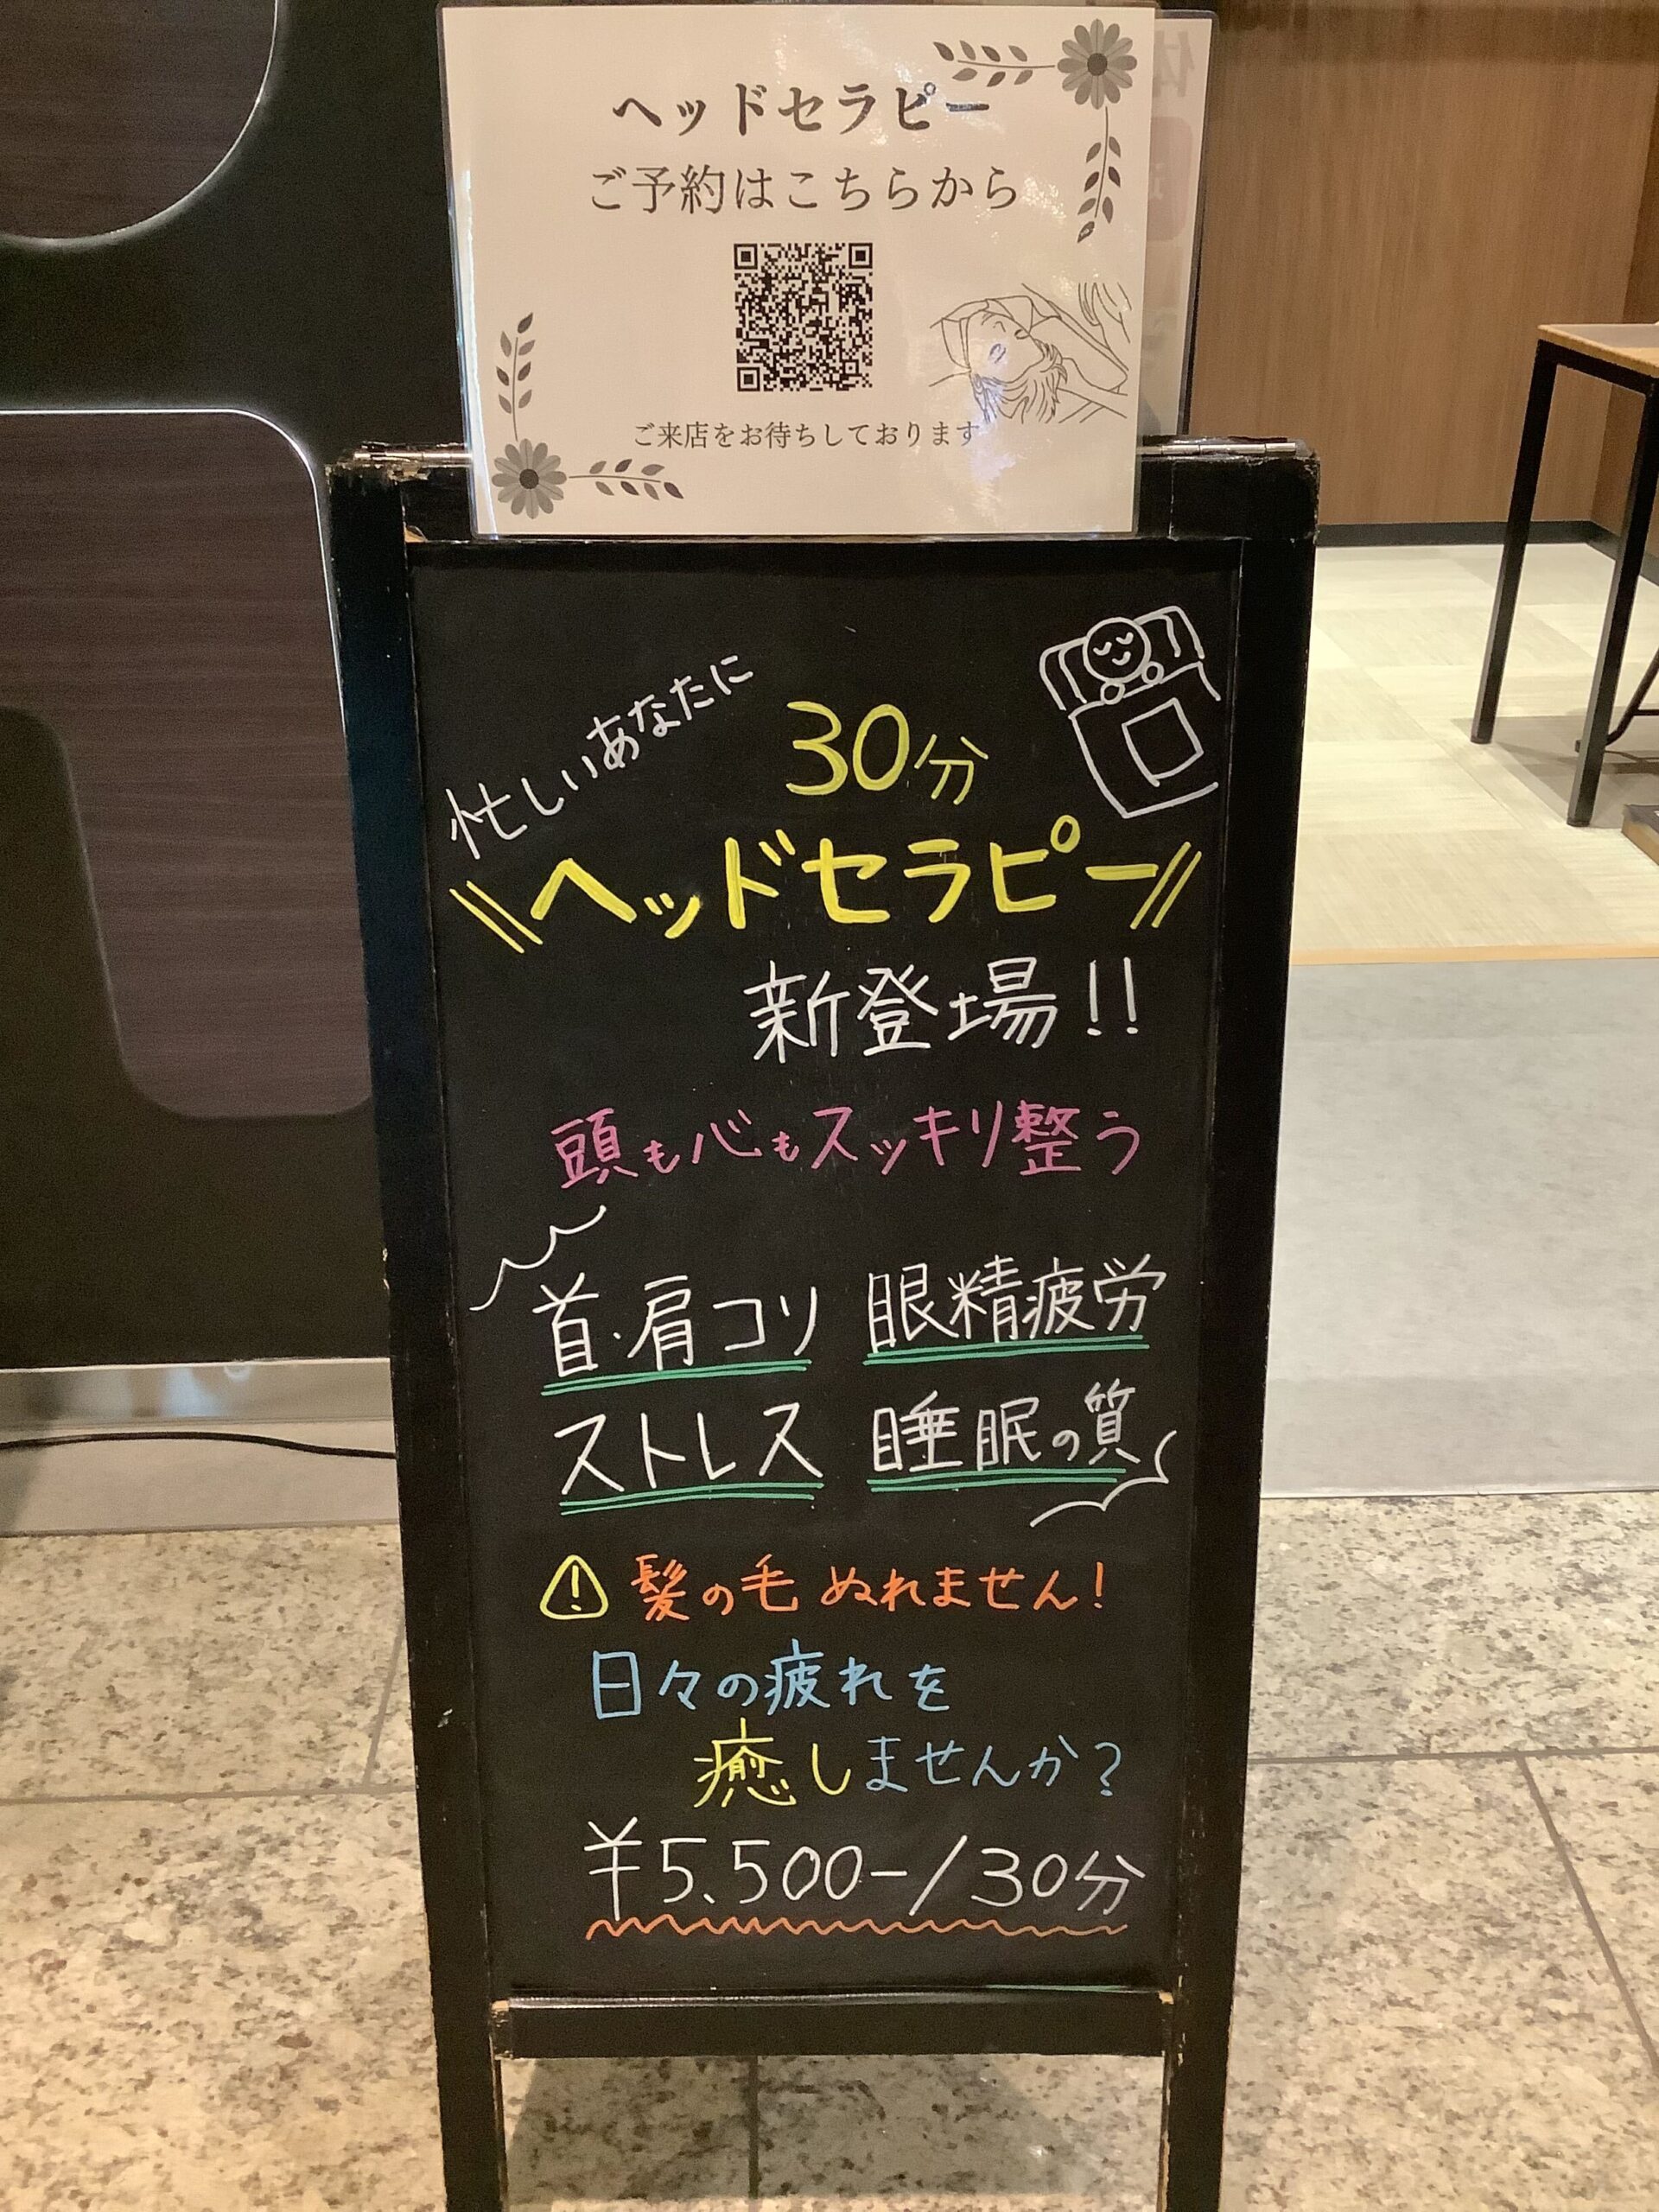 ヘッドセラピー
ご予約はこちらから
ご来店をお待ちしております
忙しいあなたに
30分
\\ヘッドセラピー//
新登場!!
頭も心もスッキリ整う
首・肩コリ 眼精疲労
ストレス 睡眠の質
⚠ 髪の毛ぬれません!
日々の疲れを
癒しませんか?
¥5,500-/30分